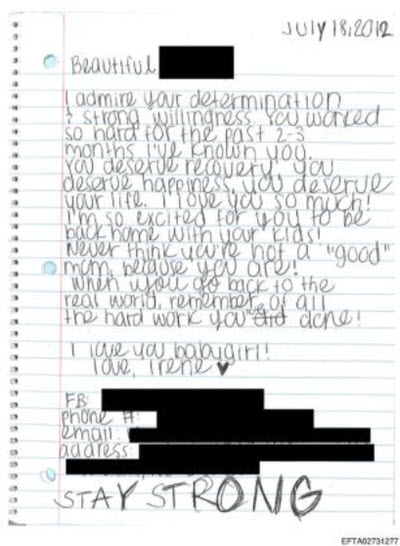 JULY 18, 2012
Beautiful
I admire your determination
& strong willingness. You worked
so hard for the past 2-3
months I've known you.
You deserve recovery, you
deserve happiness, you deserve
your life. I love you so much!
I'm so excited for you to be
back home with your kids!
Never think you're not a "good"
mom, because you are!
When you go back to the
real world, remember of all
the hard work you did done!
I love you babygirl!
Love, Irene ♥
FB:
phone #:
email:
address:
STAY STRONG
EFTA02731277